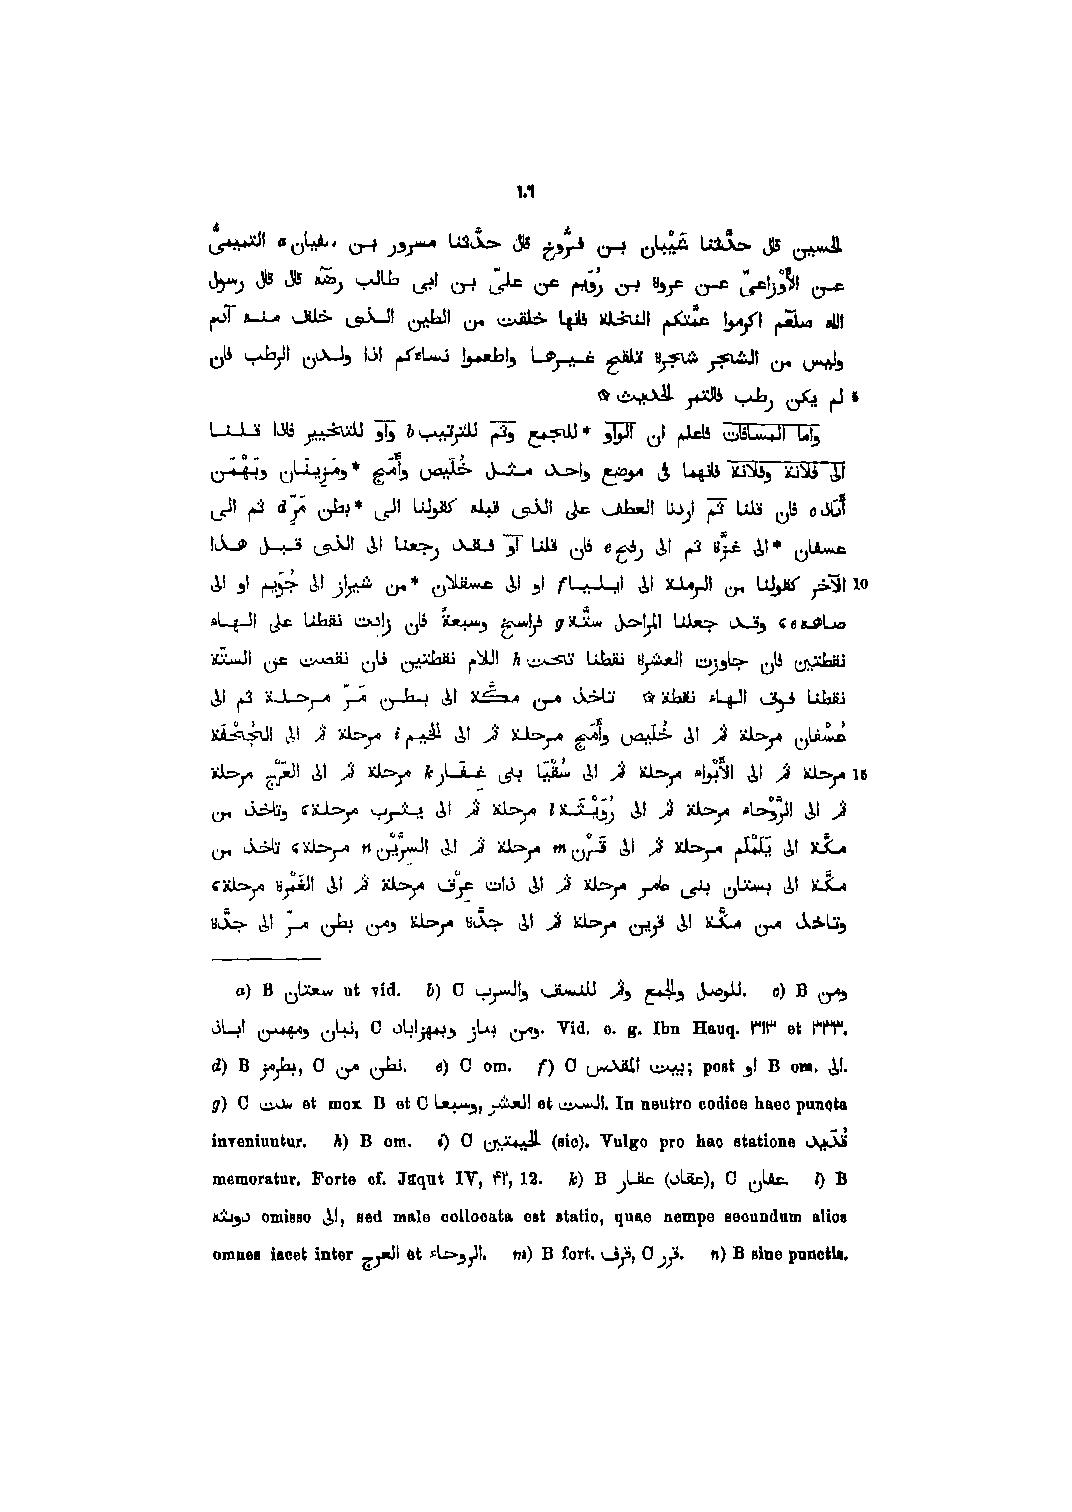 ١٠٦
الحسين قال حدَّثنا شَيْبان بن فرُّوخ قال حدَّثنا مسرور بن سفيان a التميمىُّ
عن الأَوْزاعىّ عن عروة بن رُوَيْم عن علىّ بن ابى طالب رضّه قال قال رسول
الله صلّعم اكرموا عمَّتكم النخلة فانها خلقت من الطين الذى خلف منه آدم
وليس من الشجر شجرة تلقح غيرها واطعموا نساءكم اذا ولدن الرطب فان
5 لم يكن رطب فالتمر الحديث ۞
وأما المسافات فاعلم ان الواو *للجمع وثم للترتيب b وأو للتخيير فاذا قلنا
الى فلانة وفلانة فانهما فى موضع واحد مثل خُلَيص وأَمَج *ومَزِينان وبَهْمَن
أَباذ c فان قلنا ثم اردنا العطف على الذى قبله كقولنا الى *بطن مَرّ d ثم الى
عسفان *الى غزَّة ثم الى رفح e فان قلنا أو فقد رجعنا الى الذى قبل هذا
10 الآخر كقولنا من الرملة الى ايليا f او الى عسقلان *من شيراز الى جُوَيم او الى
صاهه e، وقد جعلنا المراحل ستَّة g فراسخ وسبعةً فان زادت نقطنا على الهاء
نقطتين فان جاوزت العشرة نقطنا تحت h اللام نقطتين فان نقصت عن الستّة
نقطنا فوق الهاء نقطة ۞ تاخذ من مكَّة الى بطن مَرّ مرحلة ثم الى
عُسْفان مرحلة ثم الى خُلَيص وأَمَج مرحلة ثم الى الخيم i مرحلة ثم الى الجُحْفَة
15 مرحلة ثم الى الأَبْواء مرحلة ثم الى سُقْيَا بنى غفار k مرحلة ثم الى العَرْج مرحلة
ثم الى الرَّوْحاء مرحلة ثم الى رُوَيْثَة l مرحلة ثم الى يثرب مرحلة، وتاخذ من
مكَّة الى يَلَمْلَم مرحلة ثم الى قَرْن m مرحلة ثم الى السِرَّيْن n مرحلة، تاخذ من
مكَّة الى بستان بنى عامر مرحلة ثم الى ذات عِرْق مرحلة ثم الى الغَمْرة مرحلة،
وتاخذ من مكَّة الى قرين مرحلة ثم الى جدَّة مرحلة ومن بطن مرّ الى جدَّة
a) B سعتان ut vid. b) C للوصل والجمع وثم للنسف والسرب. c) B ومن
نبان ومهمن اباذ, C ومن بناز وبمهراباذ. Vid. e. g. Ibn Hauq. ٣١٣ et ٣٣٣.
d) B بطرمز, C نطى من. e) C om. f) C بيت المقدس; post او B om. الى.
g) C ست et mox B et C وسبعا, العشر et الست. In neutro codice haec puncta
inveniuntur. h) B om. i) C الخيمتين (sic). Vulgo pro hac statione قُدَيد
memoratur. Forte cf. Jaqut IV, ٤٢, 12. k) B عقار (عقاد), C عفان. l) B
دويثه omisso الى, sed male collocata est statio, quae nempe secundum alios
omnes iacet inter العرج et الروحاء. m) B fort. قرف, C قرر. n) B sine punctis.